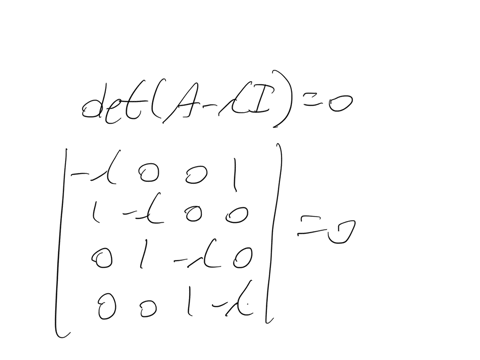 det(A-λI)=0
|-λ 0 0 1|
|1 -λ 0 0| =0
|0 1 -λ 0|
|0 0 1 -λ|